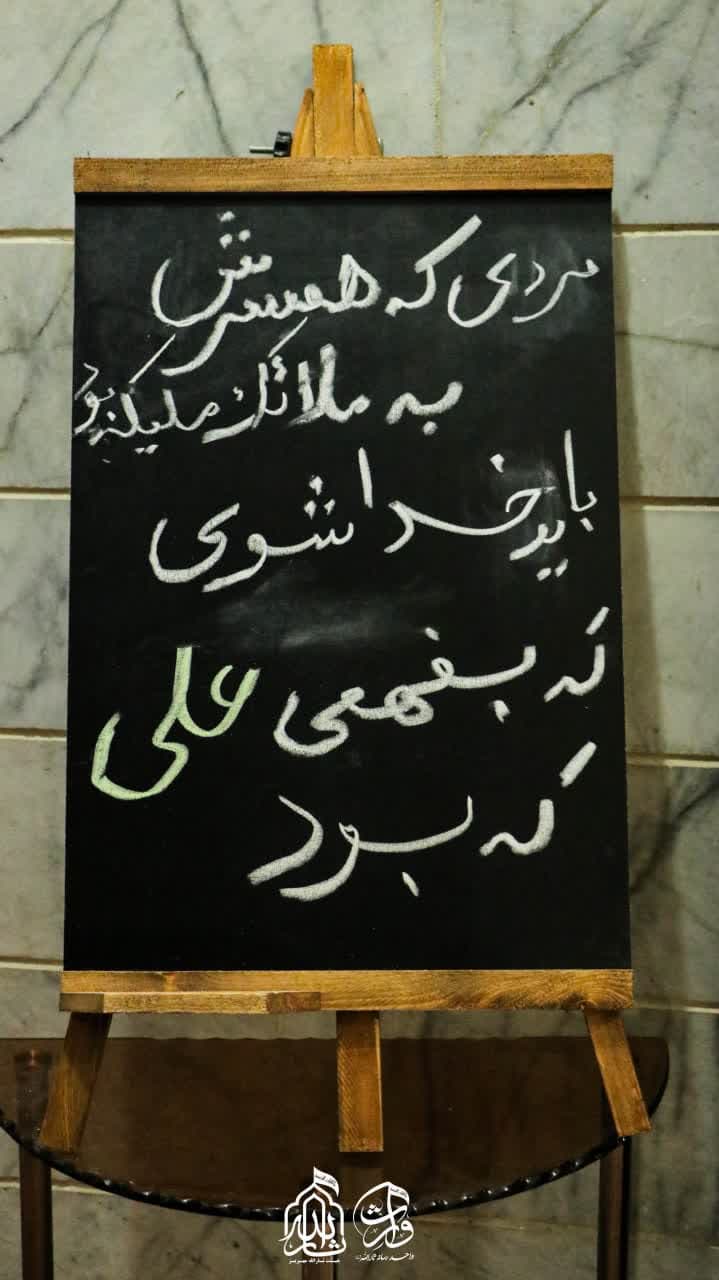 مردی که همسرش
به ملائک ملیکه بود
باید خدا شوی
که بفهمی علی
که بود
وارث
ثارالله